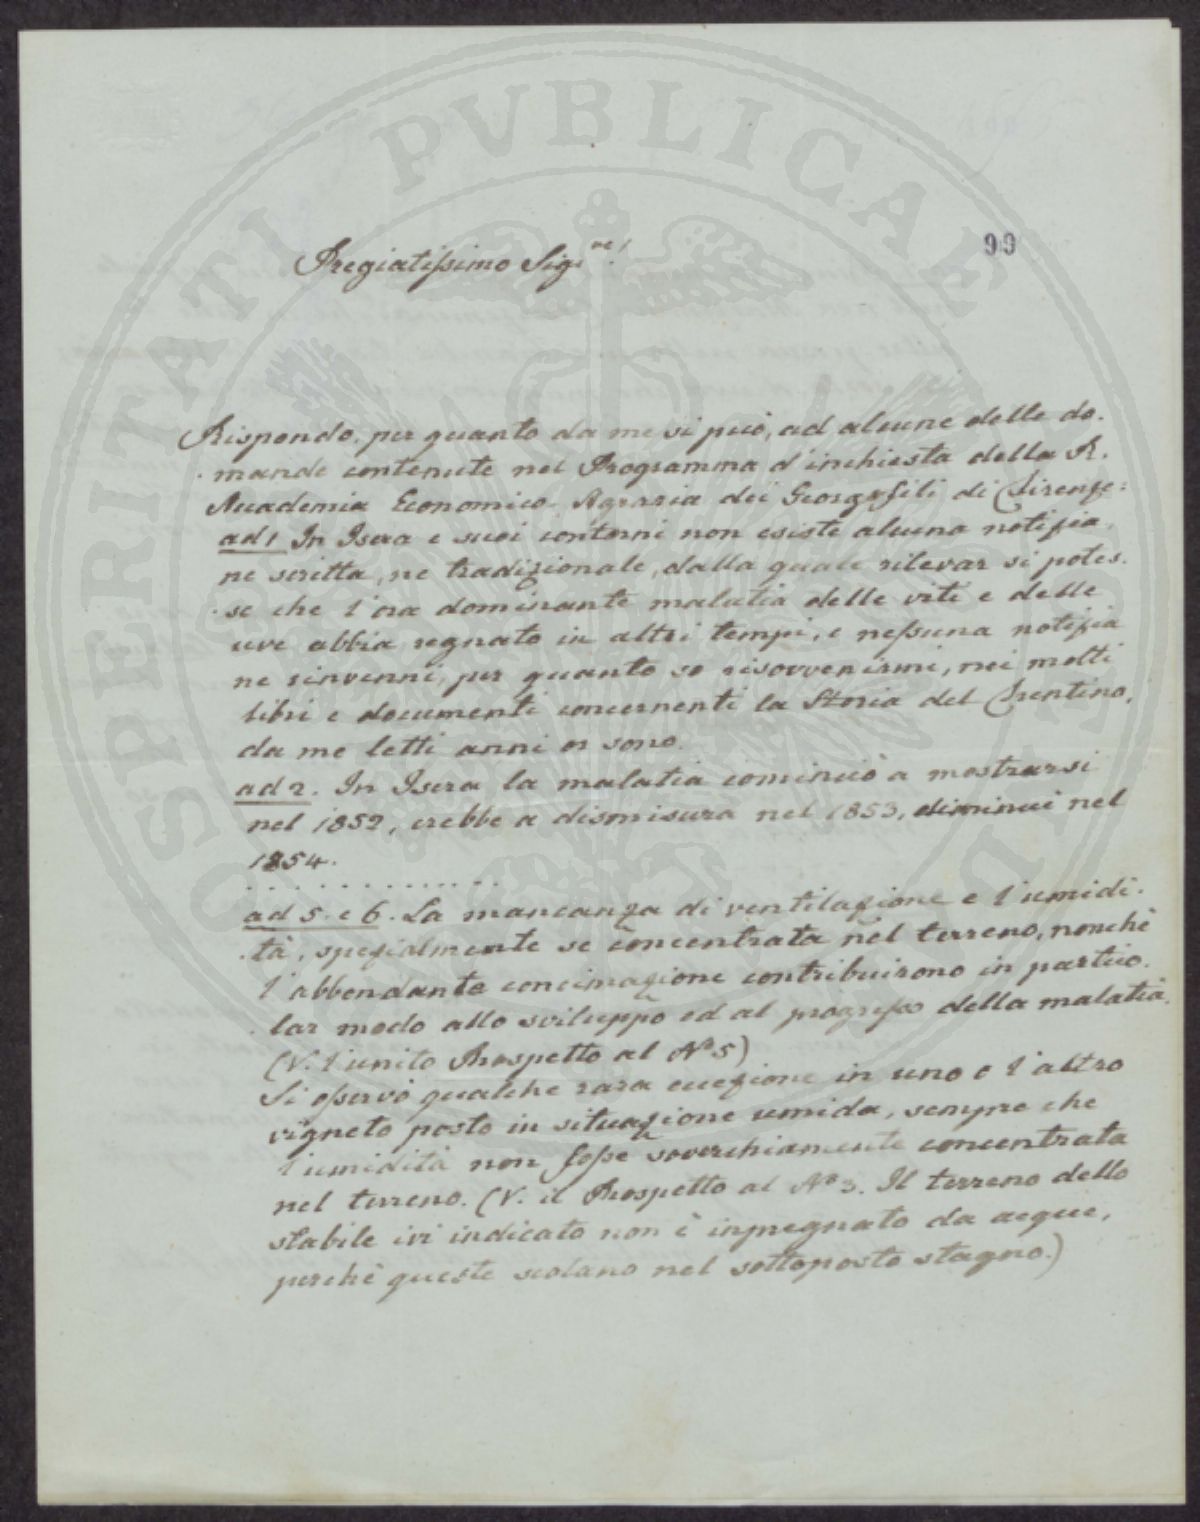 PROSPERITATI PVBLICAE
99
Pregiatissimo Sigre!
Rispondo, per quanto da me si può, ad alcune delle do.
mande contenute nel Programma d'inchiesta della R.
Accademia Economico-Agraria dei Georgofili di Firenze:
ad 1 In Isera e suoi contorni non esiste alcuna notizia
ne scritta, ne tradizionale, dalla quale rilevar si potes.
se che l'ora dominante malatia delle viti e delle
uve abbia regnato in altri tempi, e nessuna notizia
ne rinvenni, per quanto so risovvenirmi, nei molti
libri e documenti concernenti la Storia del Trentino,
da me letti anni or sono.
ad 2. In Isera la malatia cominciò a mostrarsi
nel 1852, crebbe a dismisura nel 1853, diminuì nel
1854.
. . . . . . . . . . . . .
ad 5. e 6. La mancanza di ventilazione e l'umidi.
tà, spezialmente se concentrata nel terreno, nonchè
l'abbondante concimazione contribuirono in partico.
lar modo allo sviluppo ed al progresso della malatia.
(V. l'unito Prospetto al No 5)
Si osservò qualche rara eccezione in uno o l'altro
vigneto posto in situazione umida, sempre che
l'umidità non fosse soverchiamente concentrata
nel terreno. (V. il Prospetto al No 3. Il terreno dello
stabile ivi indicato non è inpregnato da acque,
perchè queste scolano nel sottoposto stagno.)